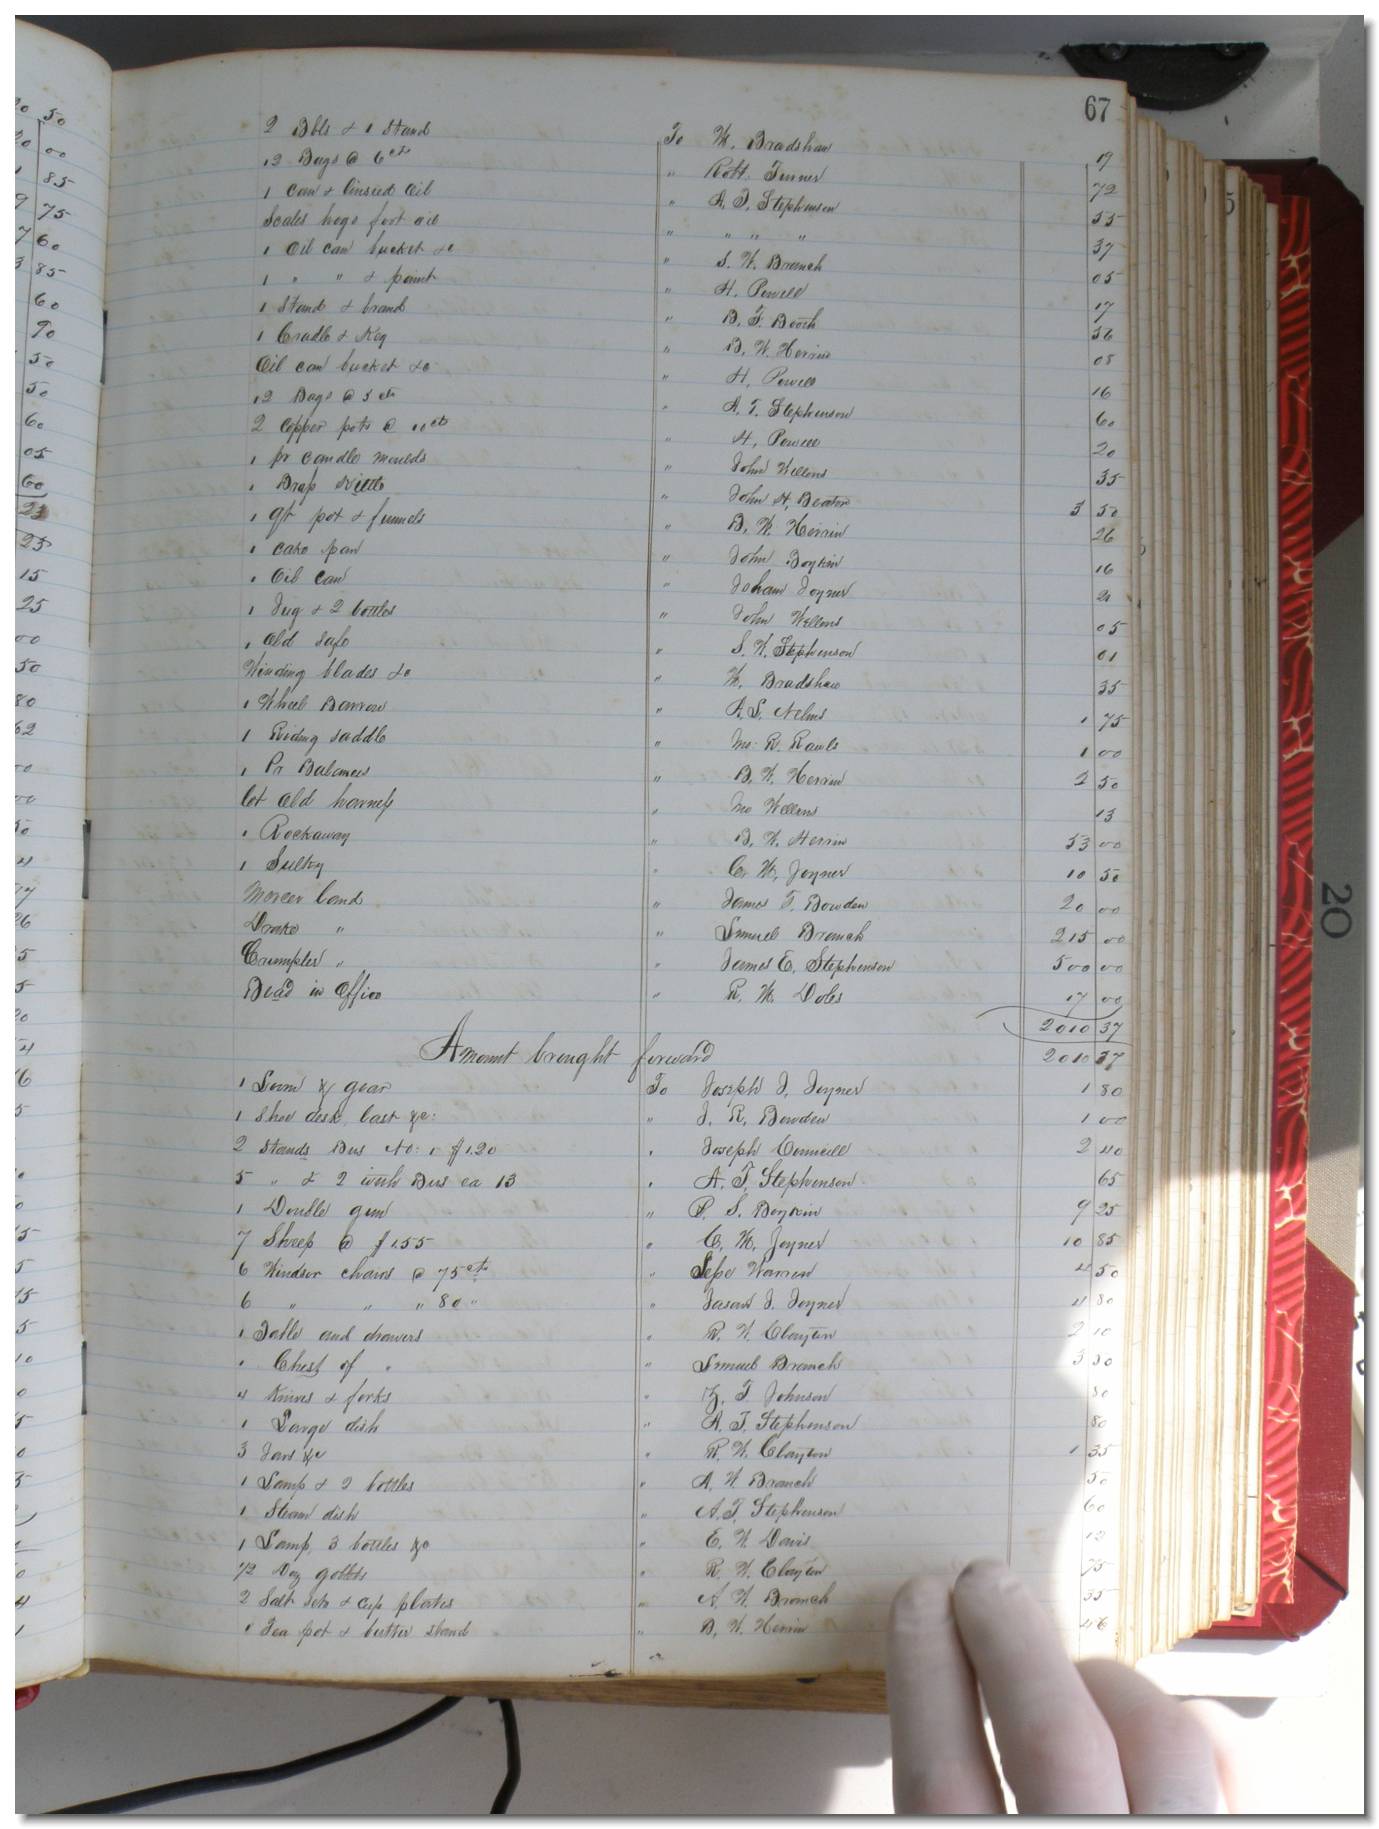 67
2 Bbls & 1 Stand To W. Bradshaw 19
12 Bags @ 6 cts " Robt. Turner 72
1 can & Linseed Oil " A. T. Stephenson 55
Scales hogs foot oil " " " " 37
1 Oil can bucket &c " S. W. Branch 05
1 " " & paint " H. Powell 17
1 Stand & brand " B. F. Booth 36
1 Cradle & Keg " B. W. Herrin 08
Oil can bucket &c " H. Powell 16
12 Bags @ 5 cts " A. T. Stephenson 60
2 Copper pots @ 10 cts " H. Powell 20
1 pr candle moulds " John Wellons 35
1 Brass Kittle " John H. Beaton 3 50
1 qt pot & funnels " B. W. Herrin 26
1 Cake pan " John Boykin 16
1 Oil can " Joham Joyner 21
1 Jug & 2 bottles " John Wellons 05
1 Old safe " S. W. Stephenson 01
Winding blades &c " W. Bradshaw 35
1 Wheel Barrow " A. S. Nelms 1 75
1 Riding saddle " Jno. R. Rawls 1 00
1 Pr Balances " B. W. Herrin 2 50
lot Old harness " Jno Wellons 13
1 Rockaway " B. W. Herrin 53 00
1 Sulky " C. W. Joyner 10 50
Mercer land " James T. Bowden 20 00
Drake " " Samuel Branch 215 00
Crumpler " " James E. Stephenson 500 00
Dead in Office " R. M. Dobs 17 00
2010 37
Amount brought forward 2010 37
1 Loom & gear To Joseph J. Joyner 1 80
1 Shoe desk, last &c: " J. R. Bowden 1 00
2 Stands Bees No: 1 $1.20 " Joseph Council 2 40
5 " & 2 with Bees ea 13 " A. T. Stephenson 65
1 Double gun " P. S. Boykin 9 25
7 Sheep @ $1.55 " C. W. Joyner 10 85
6 Windsor chairs @ 75 cts " Jesse Warren 4 50
6 " " " 80 " " Jason J. Joyner 4 80
1 Table and drawers " R. W. Clayton 2 10
1 Chest of " " Samuel Branch 3 50
4 Knives & forks " T. Johnson 80
1 Large dish " A. T. Stephenson 80
3 Jars &c " R. W. Clayton 1 35
1 Lamp & 2 bottles " A. W. Branch 50
1 Steam dish " A. T. Stephenson 60
1 Lamp, 3 bottles &c " E. W. Davis 12
1/2 Doz goblets " R. W. Clayton 75
2 Salt sets & cup plates " A. W. Branch 35
1 Tea pot & butter stand " B. W. Herrin 46